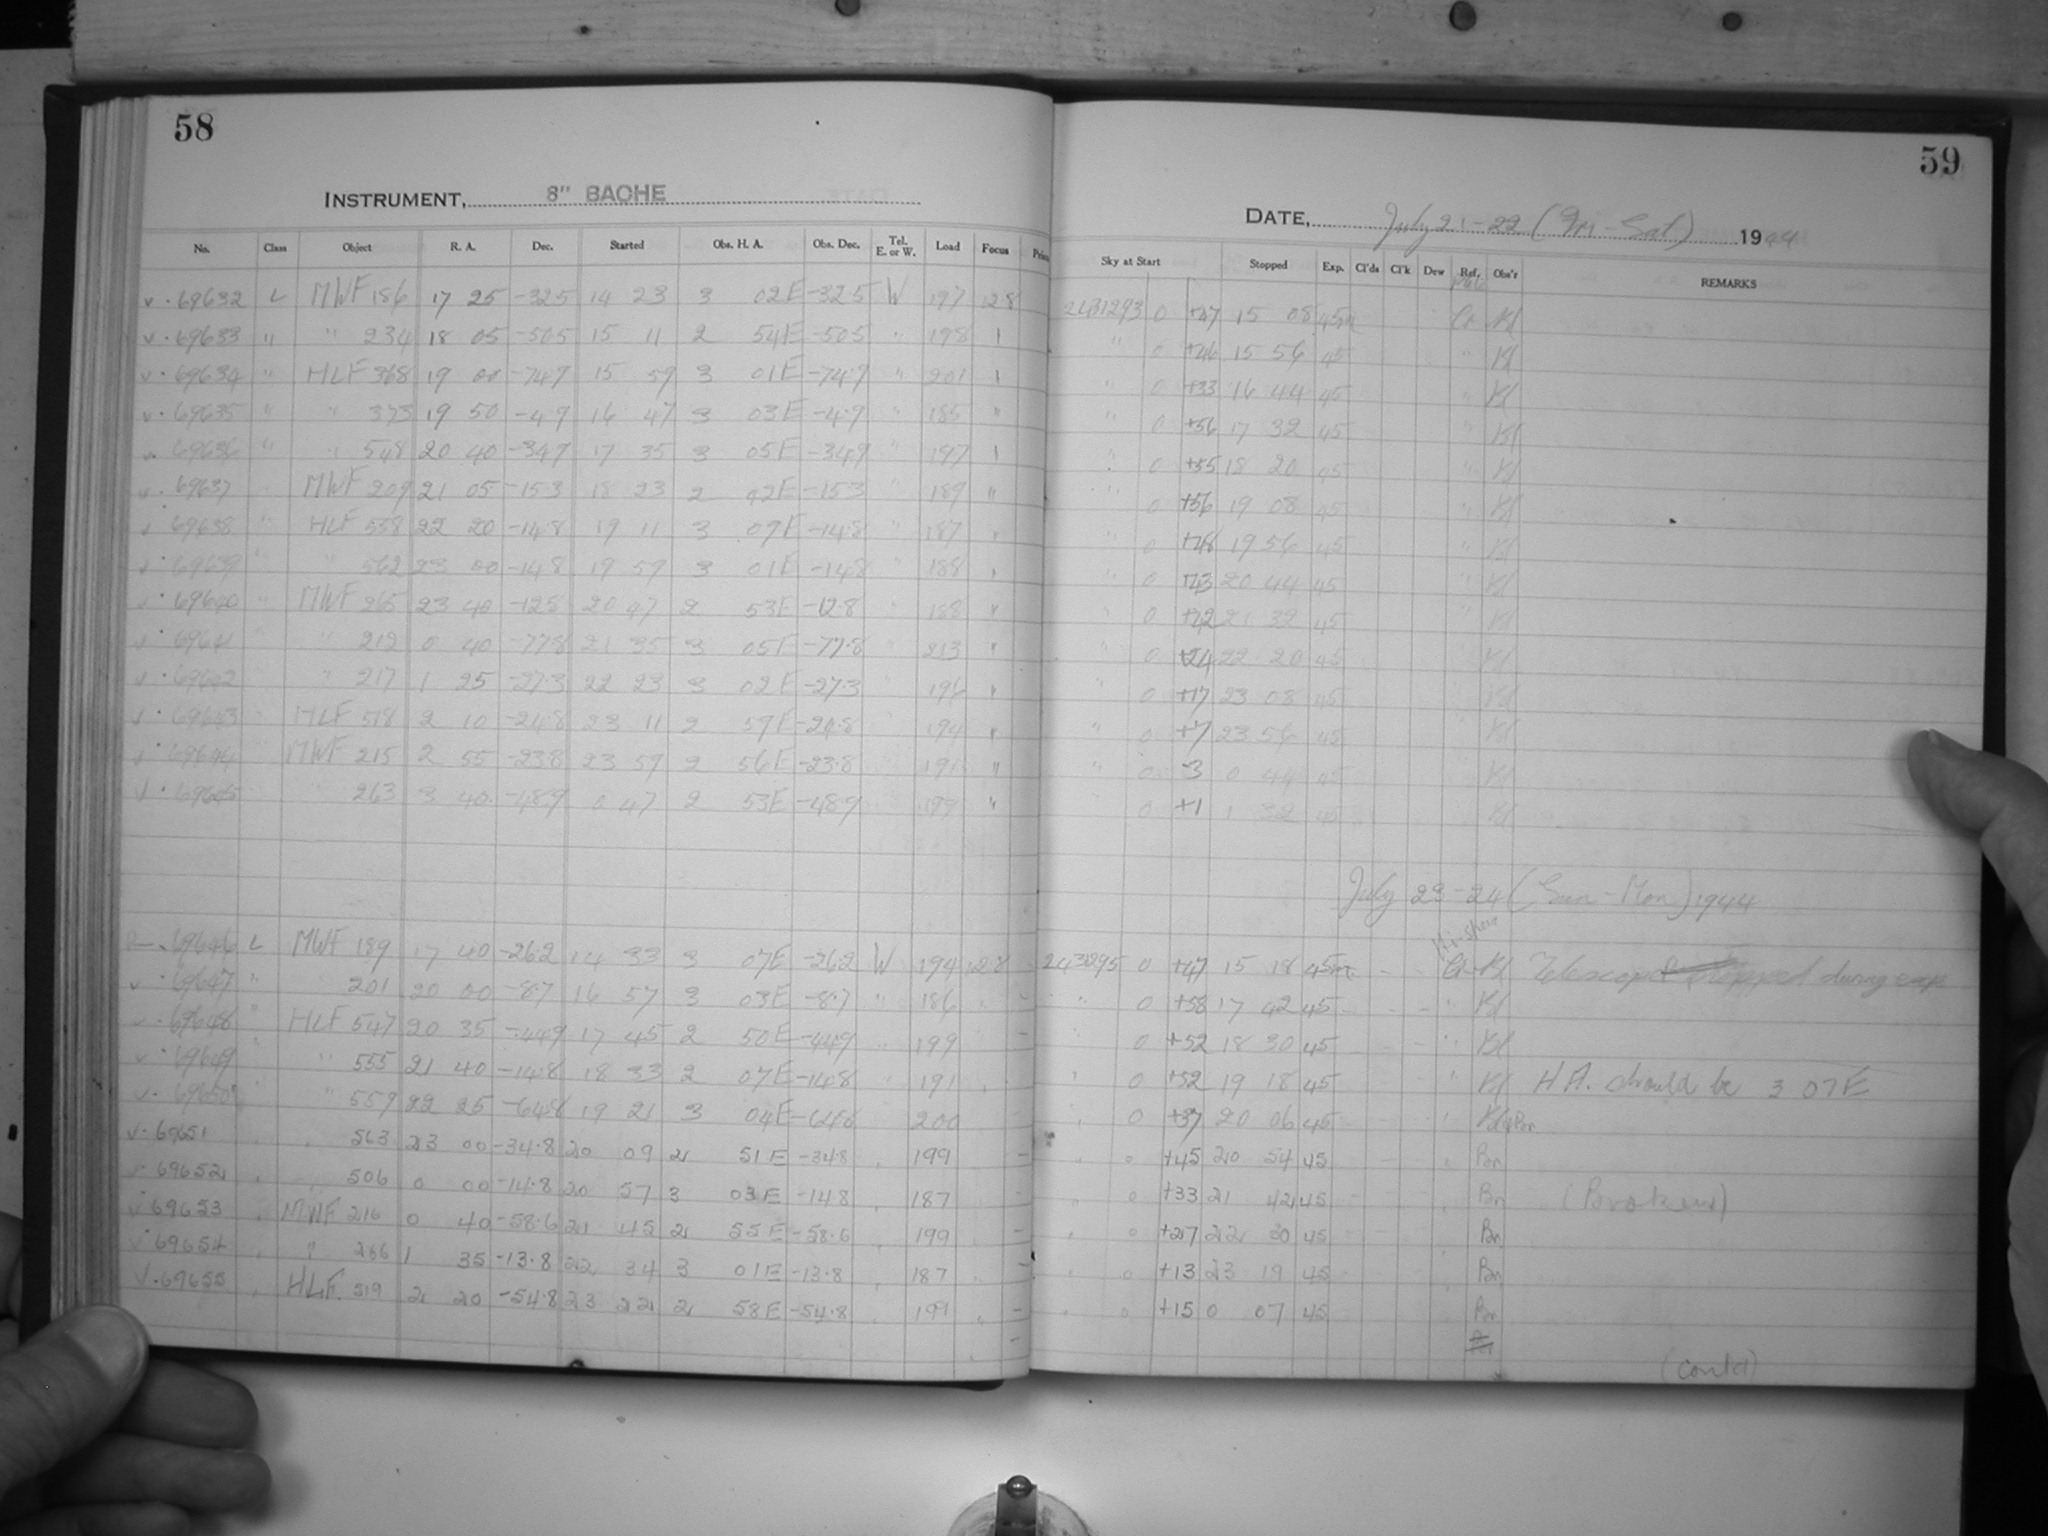 58
INSTRUMENT, 8" BACHE
No. Class Object R. A. Dec. Started Obs. H. A. Obs. Dec. Tel. E. or W. Load Focus
v . 69632 L MWF 186 17 25 -32.5 14 23 3 02E -32.5 W 197 12.8
v . 69633 " " 234 18 05 -50.5 15 11 2 54E -50.5 " 198 "
v . 69634 " HLF 368 19 00 -74.9 15 59 3 01E -74.9 " 201 "
v . 69635 " " 373 19 50 -4.9 16 47 3 03E -4.9 " 185 "
v . 69636 " " 548 20 40 -34.9 17 35 3 05E -34.9 " 197 "
v . 69637 " MWF 209 21 05 -15.3 18 23 2 42E -15.3 " 189 "
v . 69638 " HLF 558 22 20 -14.8 19 11 3 07E -14.8 " 187 "
v . 69639 " " 562 23 00 -14.8 19 59 3 01E -14.8 188 "
v . 69640 " MWF 265 23 40 -12.8 20 47 2 53E -12.8 188 "
v . 69641 " 212 0 40 -77.8 21 35 3 05E -77.8 213 "
v . 69642 " 217 1 25 -27.3 22 23 3 02E -27.3 196 "
v . 69643 HLF 518 2 10 -24.8 23 11 2 59E -24.8 194 "
v . 69644 MWF 215 2 55 -23.8 23 59 2 56E -23.8 191 "
v . 69645 " 263 3 40 -48.9 0 47 2 53E -48.9 199 "
. 69646 L MWF 189 17 40 -26.2 14 33 3 07E -26.2 W 194 12.8
v . 69647 " " 201 20 00 -8.7 16 57 3 03E -8.7 " 186
v . 69648 " HLF 547 20 35 -44.9 17 45 2 50E -44.9 " 199
v . 69649 " " 555 21 40 -14.8 18 33 2 07E -14.8 191
v . 69650 " " 559 22 25 -64.8 19 21 3 04E -64.8 200
v . 69651 563 23 00 -34.8 20 09 2 51E -34.8 199
v . 69652 506 0 00 -14.8 20 57 3 03E -14.8 187
v . 69653 MWF 216 0 40 -58.6 21 45 2 55E -58.6 199
v . 69654 " 266 1 35 -13.8 22 34 3 01E -13.8 187
v . 69655 HLF 519 2 20 -54.8 23 22 2 58E -54.8 199
59
DATE, July 21-22 (Fri-Sat) 1944
Sky at Start Stopped Exp. Cl'ds Cl'k Dew Ref. Obs'r REMARKS
2431293 0 +47 15 08 45m Cr Kl
" 0 +46 15 56 45 " Kl
" 0 +33 16 44 45 " Kl
" 0 +56 17 32 45 " Kl
" 0 +55 18 20 45 " Kl
" 0 +56 19 08 45 " Kl
" 0 +48 19 56 45 " Kl
" 0 +43 20 44 45 " Kl
" 0 +42 21 32 45 " Kl
" 0 +24 22 20 45 Kl
" 0 +17 23 08 45 Kl
" 0 +7 23 56 45 Kl
" 0 -3 0 44 45 Kl
0 +1 1 32 45 Kl
July 23-24 (Sun-Mon) 1944
2431295 0 +47 15 18 45m Cr Kl Telescope stopped during exp
" 0 +58 17 42 45 " Kl
0 +52 18 30 45 " Kl
" 0 +52 19 18 45 " Kl H.A. should be 3 07E
0 +37 20 06 45 " Kl & Bn
0 +45 20 54 45 Bn
0 +33 21 42 45 Bn (Broken)
0 +27 22 30 45 Bn
0 +13 23 19 45 Bn
0 +15 0 07 45 Bn
(cont'd)